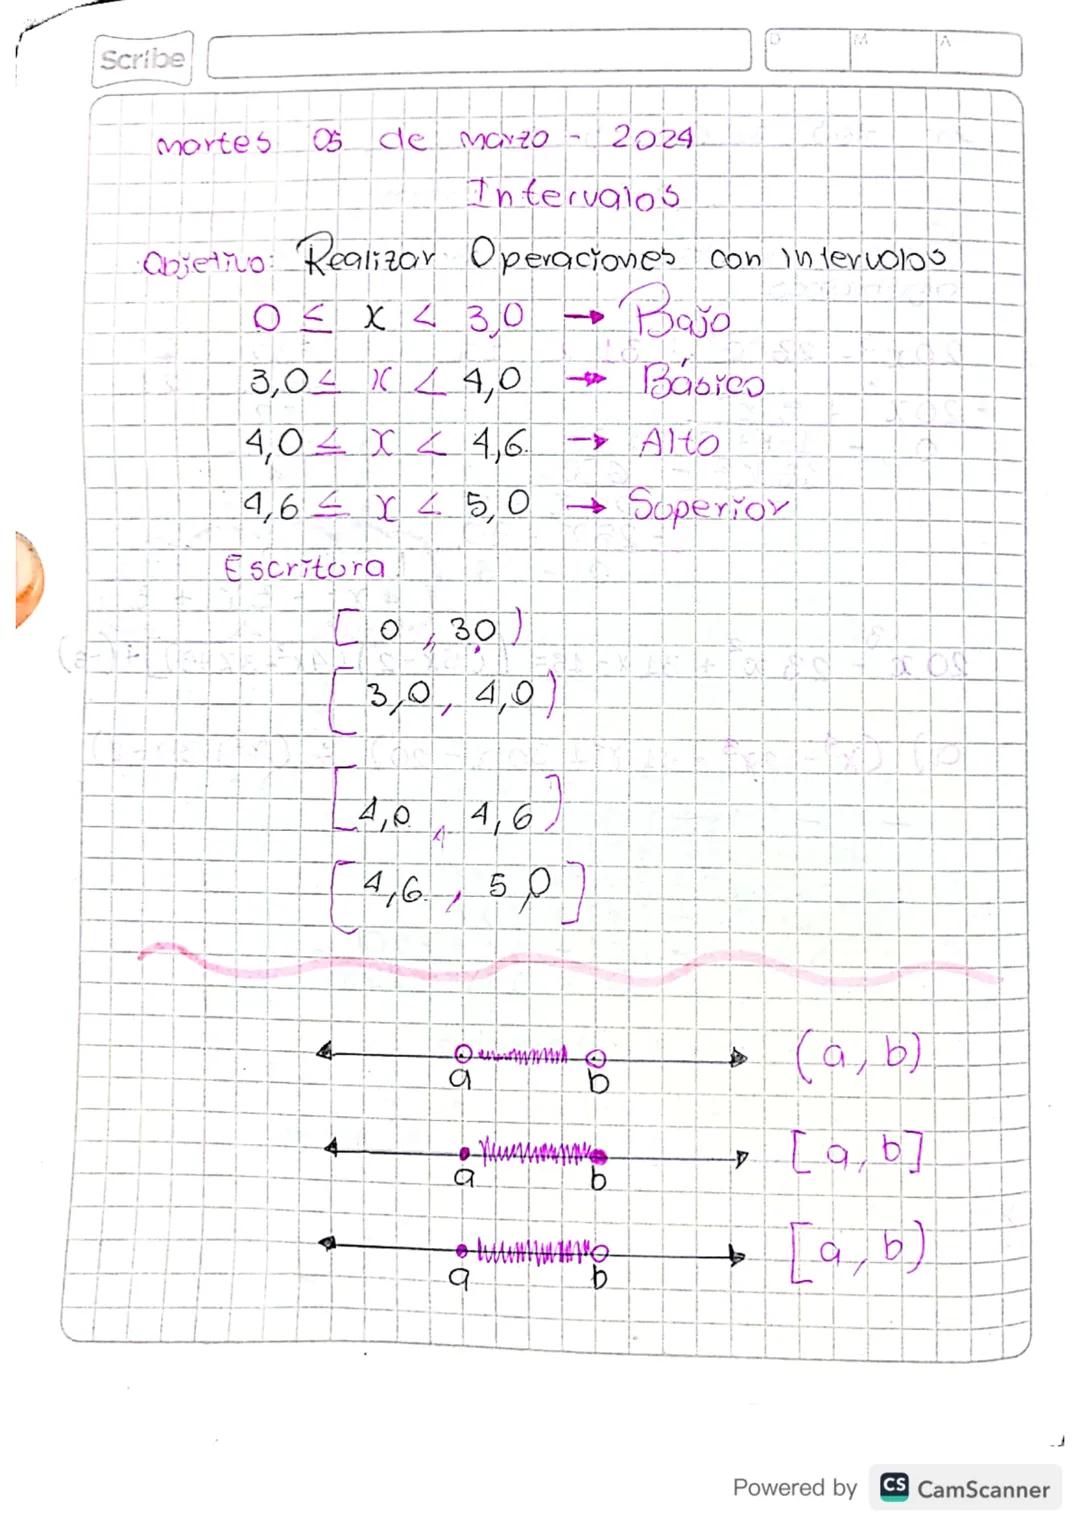 Scribe
D M A
martes 05 de marzo - 2024
Intervalos
Objetivo: Realizar Operaciones con intervalos
0 ≤ x < 3,0 → Bajo
3,0 ≤ x < 4,0 → Básico
4,0 ≤ x < 4,6 → Alto
4,6 ≤ x < 5,0 → Superior
Escritura
[ 0 , 3,0 )
[ 3,0 , 4,0 )
[ 4,0 , 4,6 )
[ 4,6 , 5,0 ]
a b (a, b)
a b [a, b]
a b [a, b)
Powered by CS CamScanner